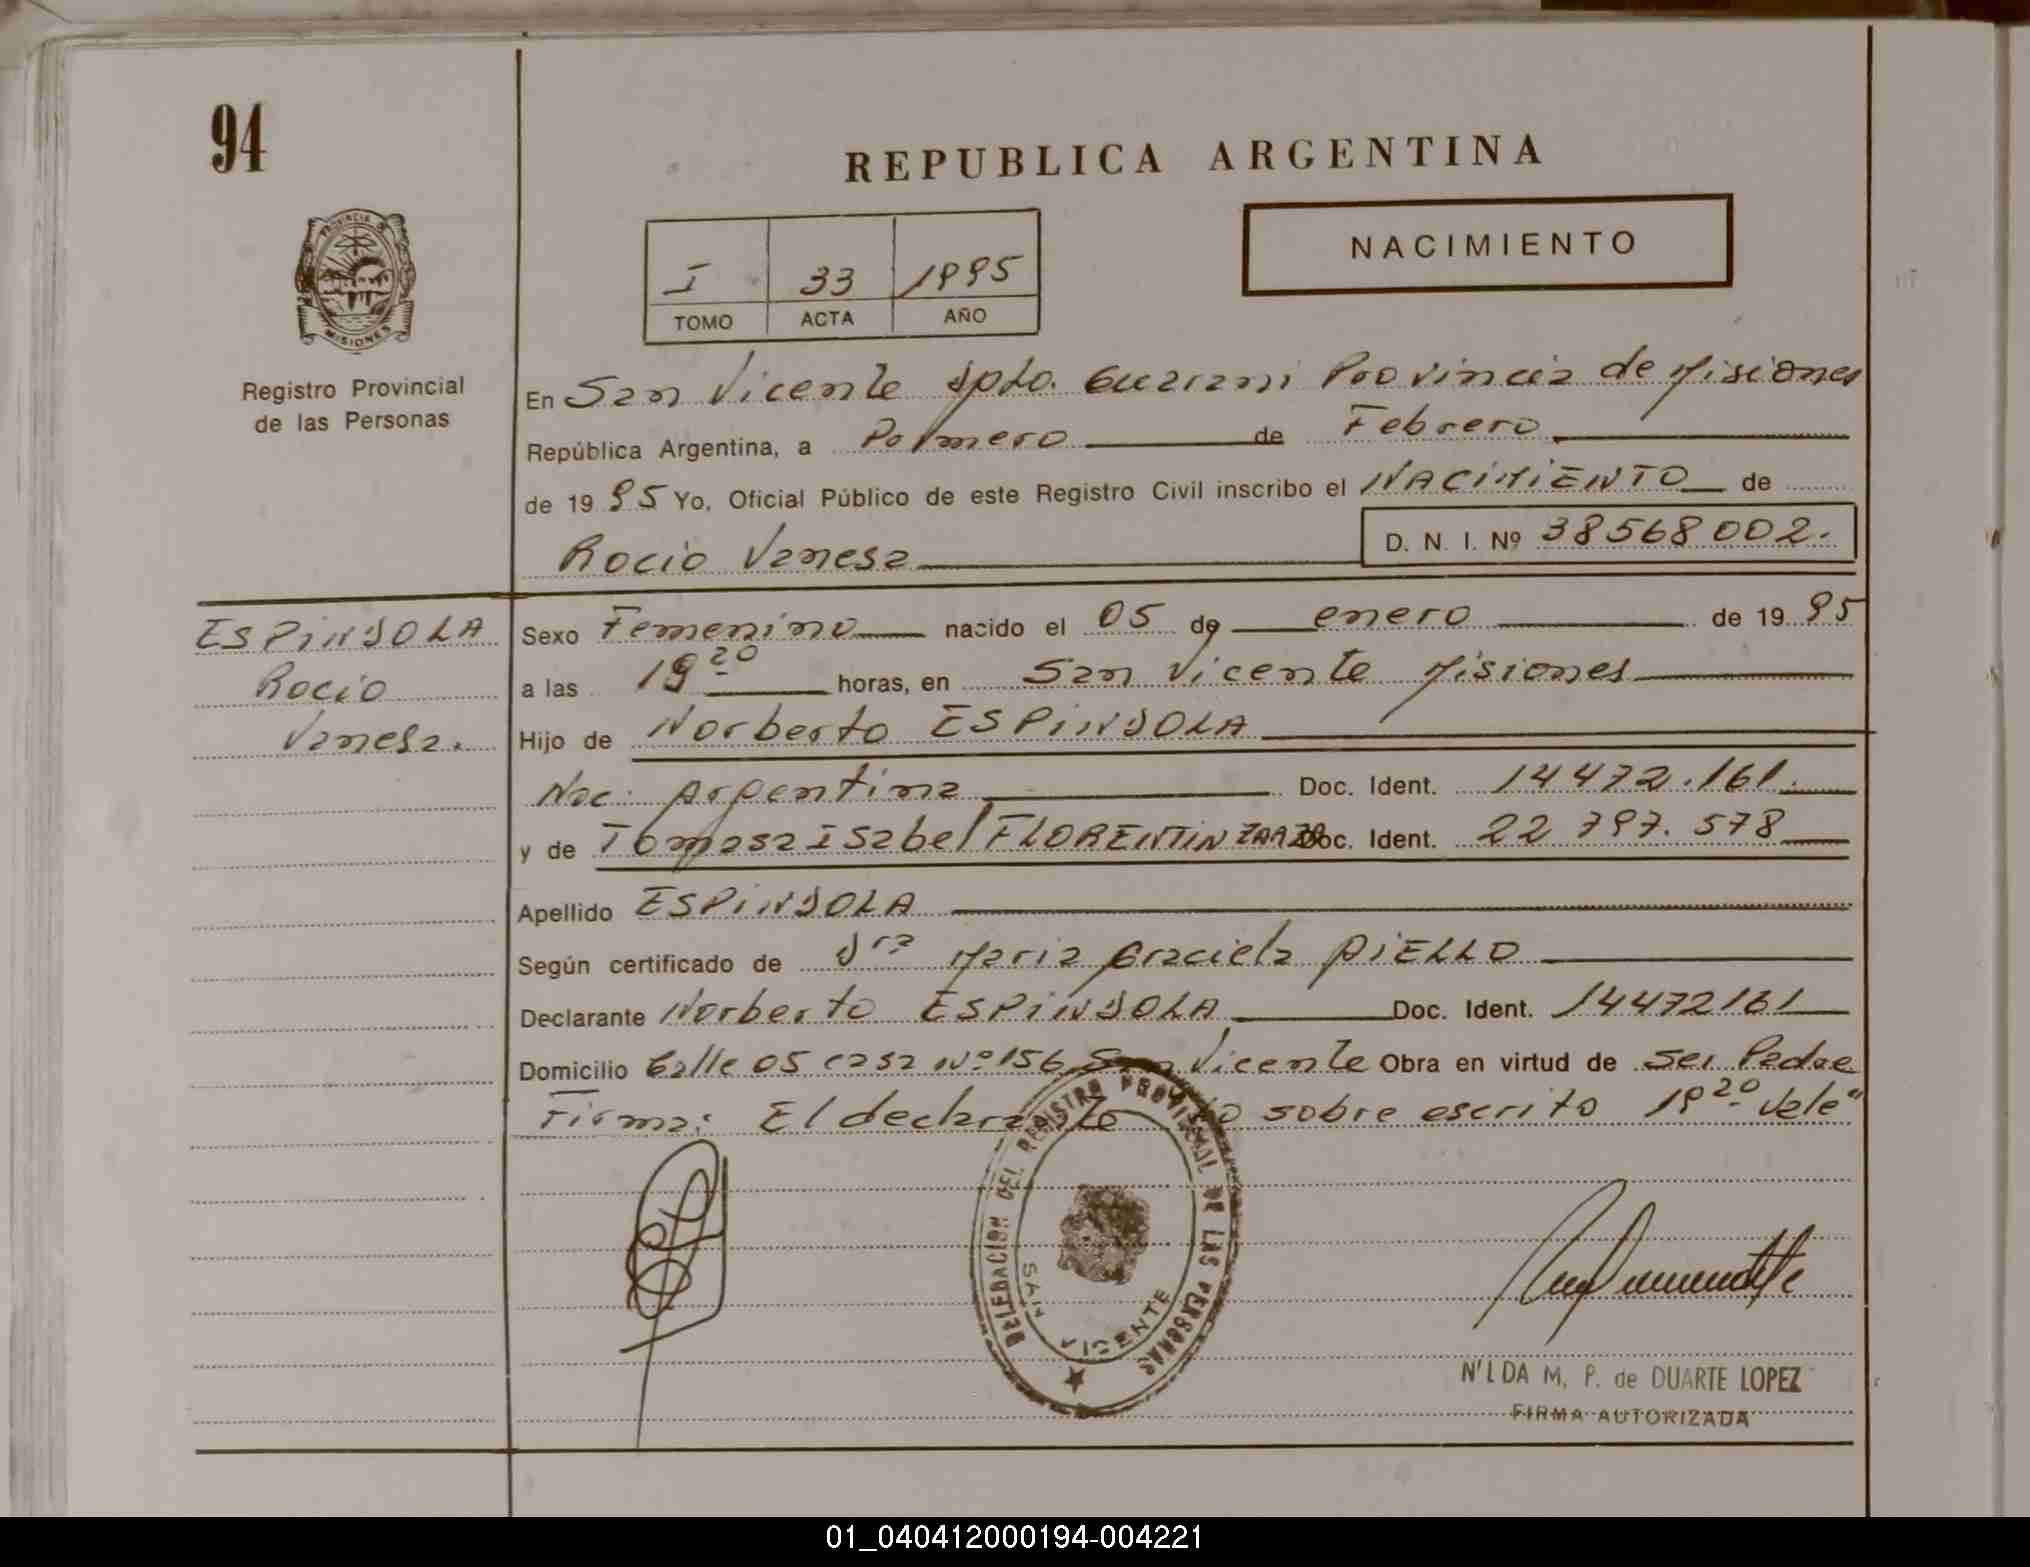 94
REPUBLICA ARGENTINA
NACIMIENTO
I 33 1995
TOMO ACTA AÑO
PROVINCIA DE
MISIONES
Registro Provincial
de las Personas
En San Vicente Dpto. Guarani Provincia de Misiones
República Argentina, a Primero de Febrero
de 1995 Yo, Oficial Público de este Registro Civil inscribo el NACIMIENTO de
Rocio Vanesa D. N. I. Nº 38568002.
ESPINDOLA
Rocio
Vanesa.
Sexo Femenino nacido el 05 de enero de 1995
a las 19 20 horas, en San Vicente Misiones
Hijo de Norberto ESPINDOLA
Nac: Argentina Doc. Ident. 14472.161.
y de Tomasa Isabel FLORENTIN Doc. Ident. 22 797.578
Apellido ESPINDOLA
Según certificado de Dra Maria Graciela AIELLO
Declarante Norberto ESPINDOLA Doc. Ident. 14472161
Domicilio Calle 05 casa Nº 156 San Vicente Obra en virtud de ser Padre
Firma: El declarante sobre escrito 19 20 Vale"
DELEGACION DEL REGISTRO PROVINCIAL DE LAS PERSONAS
SAN VICENTE
N'LDA M. P. de DUARTE LOPEZ
FIRMA AUTORIZADA
01_040412000194-004221